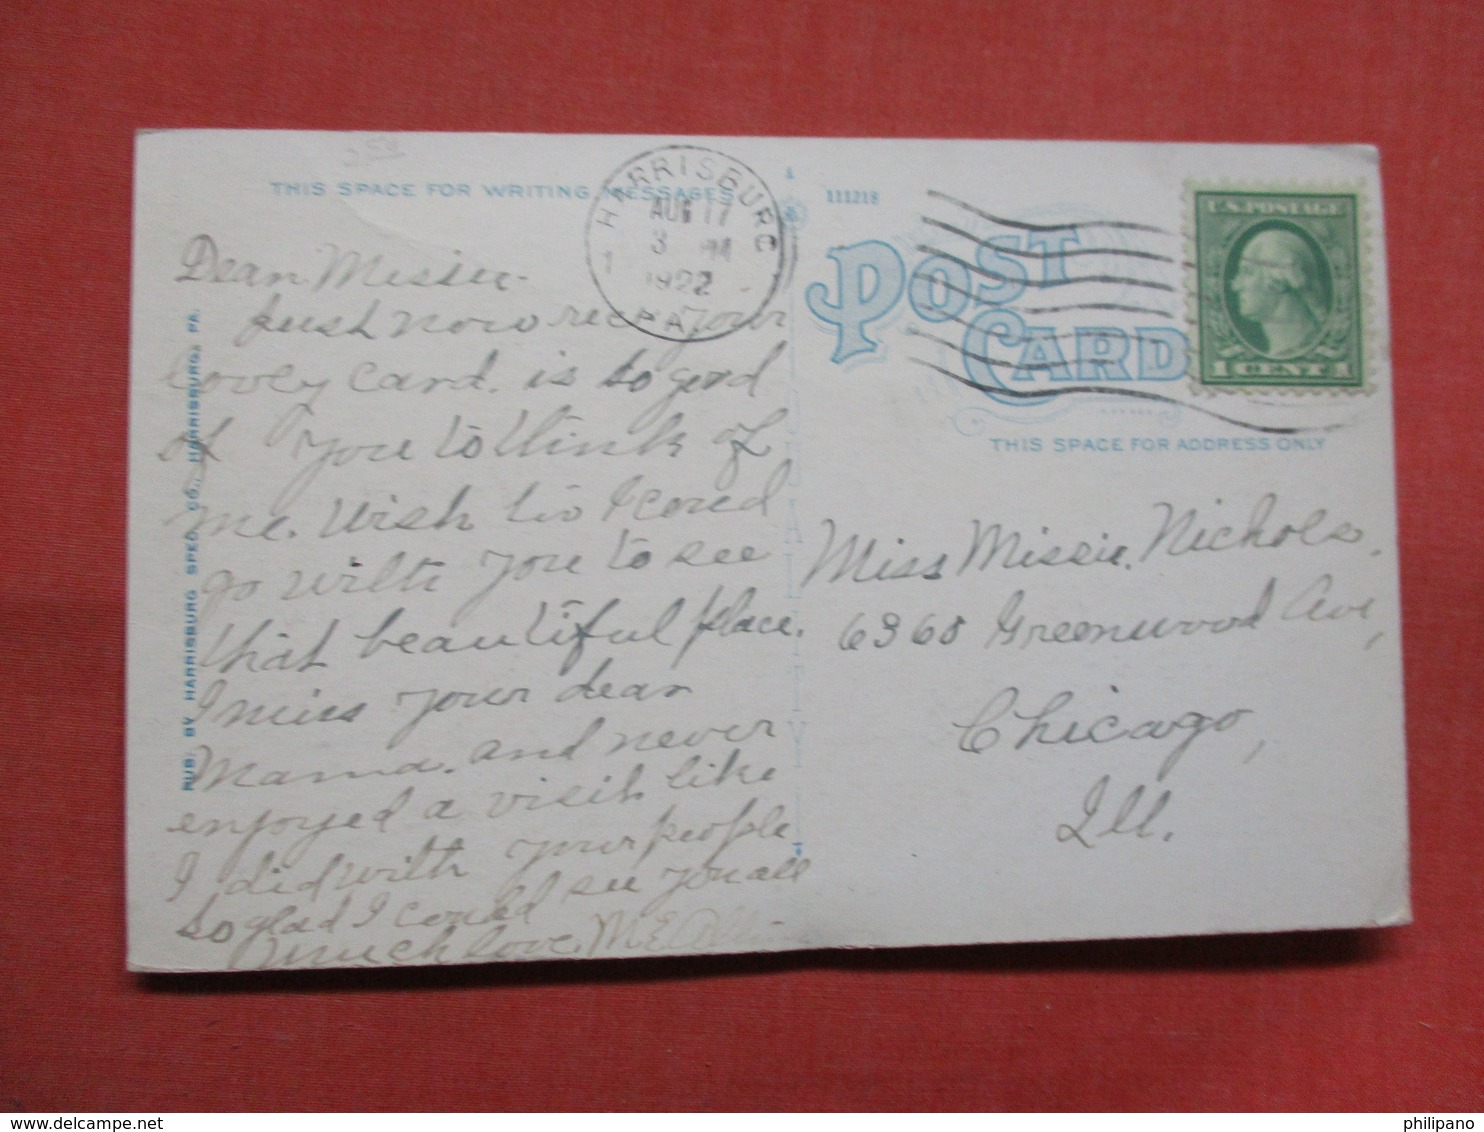 250
THIS SPACE FOR WRITING MESSAGES
HARRISBURG
AUG 17
3 PM
1922
1
PA.
111218
POST
CARD
U.S. POSTAGE
1 CENT 1
THIS SPACE FOR ADDRESS ONLY
PUB. BY HARRISBURG SPEC. CO., HARRISBURG, PA.
Dear Missie-
Just now rec your
lovey card. is so good
of you to think of
me. Wish I coud
go with you to see
that beautiful place.
I miss your dear
Mama. and never
enjoyed a visit like
I did with your people
so glad I could see you all
much love. M.E.
Miss Missie Nichols.
6360 Greenwood Ave,
Chicago,
Ill.
www.delcampe.net
philipano